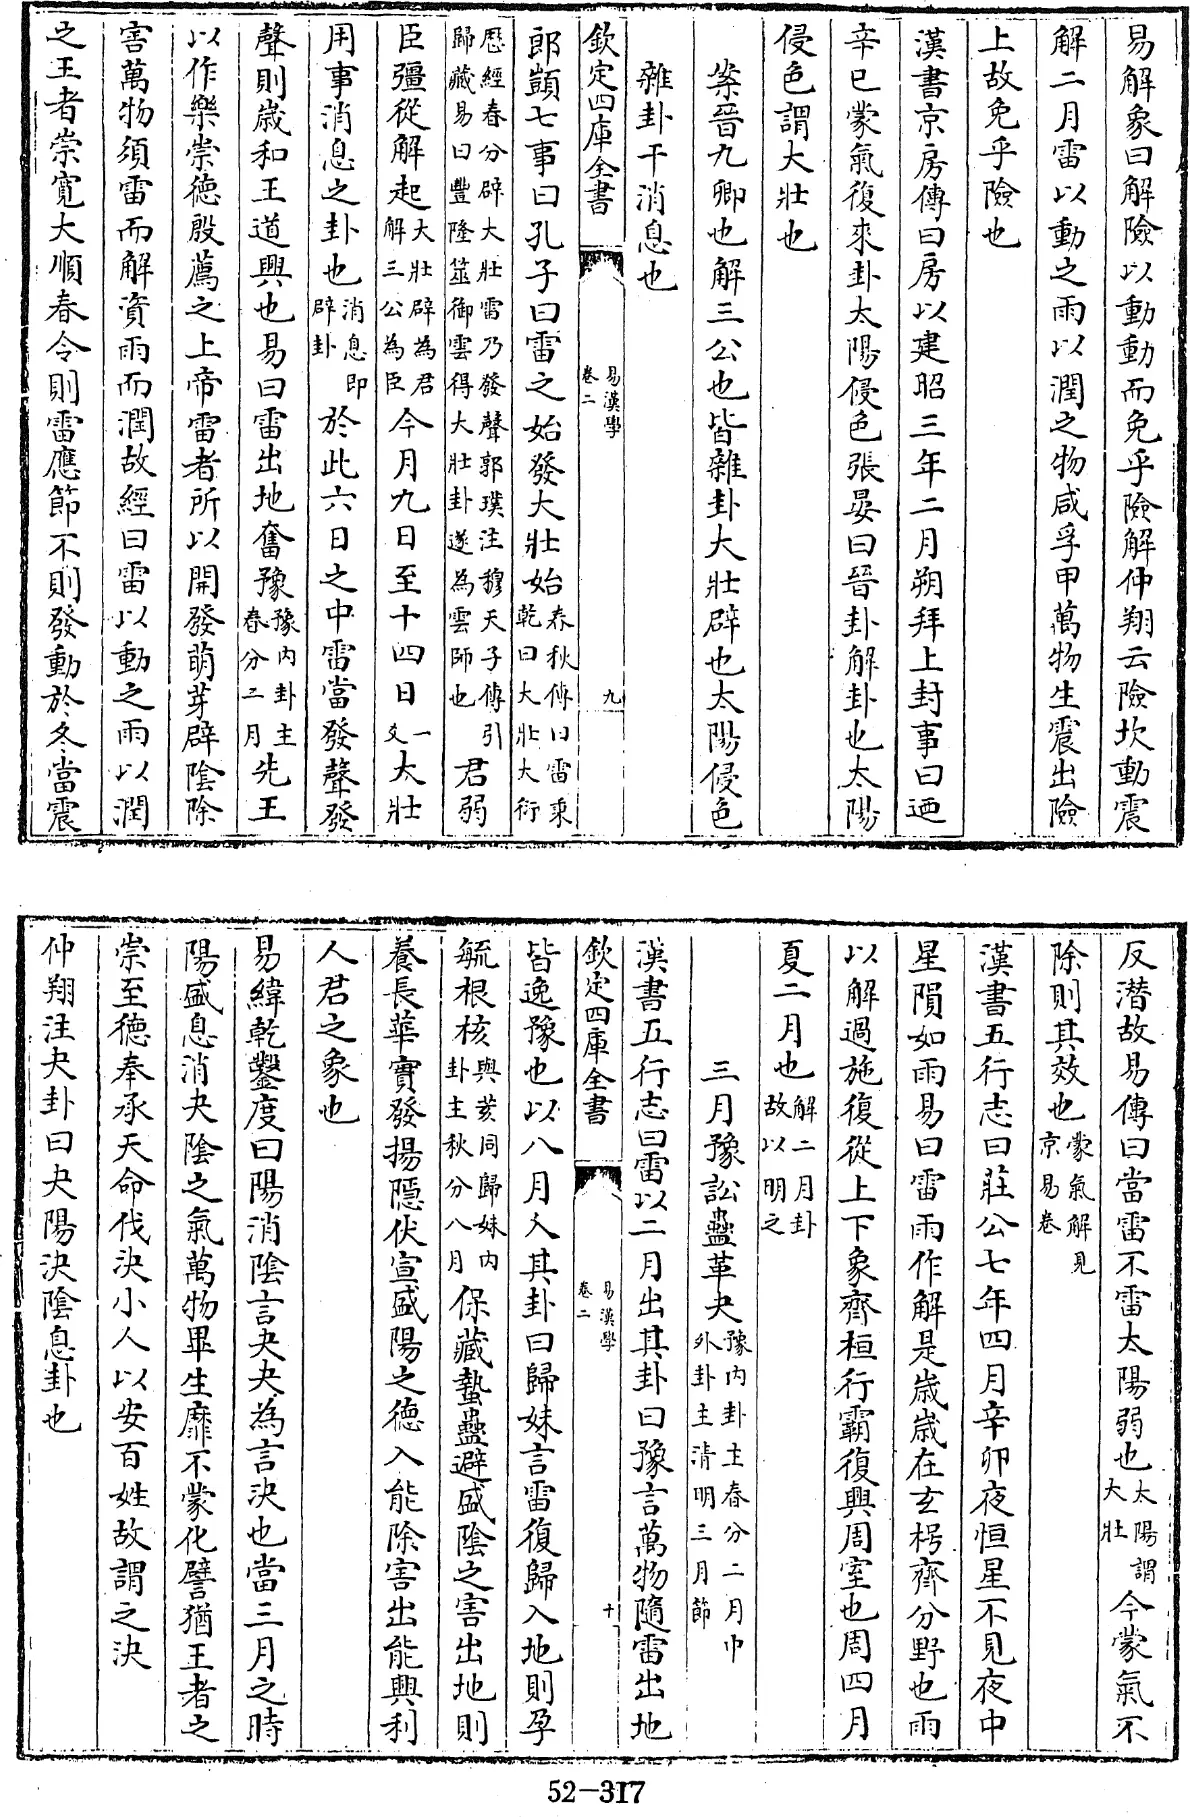 易解象曰解險以動動而免乎險解仲翔云險坎動震
解二月雷以動之雨以潤之物咸孚甲萬物生震出險
上故免乎險也
漢書京房傳曰房以建昭三年二月朔拜上封事曰迺
辛巳蒙氣復來卦太陽侵色張晏曰晉卦解卦也太陽
侵色謂大壯也
案晉九卿也解三公也皆雜卦大壯辟也太陽侵色
雜卦干消息也
欽定四庫全書
易漢學
卷二
九
郎顗七事曰孔子曰雷之始發大壯始春秋傳曰雷乘
乾曰大壯大衍
厯經春分辟大壯雷乃發聲郭璞注穆天子傳引
歸藏易曰豐隆筮御雲得大壯卦遂為雲師也君弱
臣彊從解起大壯辟為君
解三公為臣今月九日至十四日一
爻大壯
用事消息之卦也消息即
辟卦於此六日之中雷當發聲發
聲則歳和王道興也易曰雷出地奮豫豫内卦主
春分二月先王
以作樂崇徳殷薦之上帝雷者所以開發萌芽辟陰除
害萬物須雷而解資雨而潤故經曰雷以動之雨以潤
之王者崇寛大順春令則雷應節不則發動於冬當震
反潛故易傳曰當雷不雷太陽弱也太陽謂
大壯今蒙氣不
除則其效也蒙氣解見
京易卷
漢書五行志曰莊公七年四月辛卯夜恒星不見夜中
星隕如雨易曰雷雨作解是歳歳在玄枵齊分野也雨
以解過施復從上下象齊桓行霸復興周室也周四月
夏二月也解二月卦
故以明之
三月豫訟蠱革夬豫内卦主春分二月中
外卦主清明三月節
漢書五行志曰雷以二月出其卦曰豫言萬物隨雷出地
欽定四庫全書
易漢學
卷二
十
皆逸豫也以八月入其卦曰歸妹言雷復歸入地則孕
毓根核與荄同歸妹内
卦主秋分八月保藏蟄蟲避盛陰之害出地則
養長華實發揚隱伏宣盛陽之徳入能除害出能興利
人君之象也
易緯乾鑿度曰陽消陰言夬夬為言決也當三月之時
陽盛息消夬陰之氣萬物畢生靡不蒙化譬猶王者之
崇至徳奉承天命伐決小人以安百姓故謂之決
仲翔注夬卦曰夬陽決陰息卦也
52-317